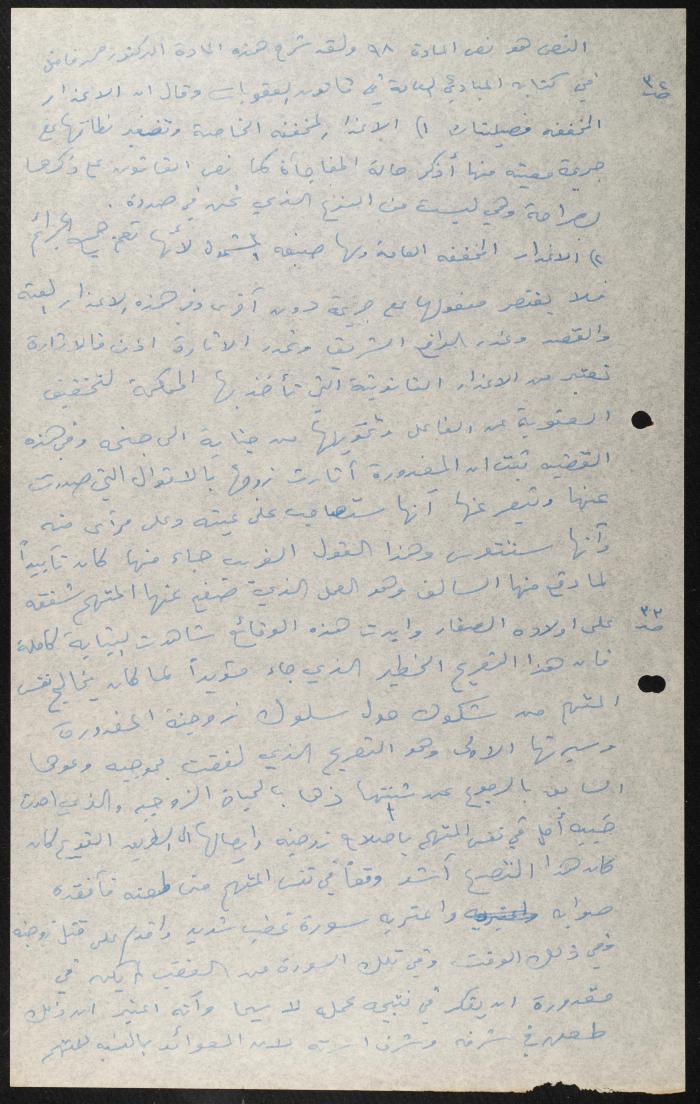 النص هو نص المادة ٩٨ ولقد شرح هذه المادة الدكتور محمد فاضل
ص ٣٢
في كتابه المبادئ العامة في قانون العقوبات وقال ان الاعذار
المخففه فصيلتان ١) الاعذار المخففه الخاصة وتقتصر نطاقها على
جريمة معينه منها أذكر حالة المفاجأة كما نص القانون على ذكرها
بصراحة وهي ليست من النوع الذي نحن في صدده .
٢) الاعذار المخففه العامة ولها صبغه الشمول لأنها تعم جميع الجرائم
فلا يقتصر مفعولها على جريمة دون أخرى ومن هذه الاعذار العته
والقصر وعذر الدافع الشريف وعذر الاثارة اذن فالاثارة
تعتبر من الاعذار القانونية التي تأخذ بها المحكمة لتخفيف
العقوبة عن الفاعل وتحويلها من جناية الى جنحه وفي هذه
القضيه ثبت ان المغدورة أثارت زوجها بالاقوال التي صدرت
عنها وتعبر عنها أنها ستصاحب على عينه وعلى مرأى منه
وأنها ستتعرس وهذا القول الغريب جاء منها كان تأييداً
لما وقع منها السالف وهو العمل الذي صفح عنها المتهم شفقه
ص ٣٣
على اولاده الصغار وايدت هذه الوقائع شاهدت البناية كاملة
فان هذا التصريح الخطير الذي جاء مؤيداً لما كان يخالج نفس
المتهم من شكوك حول سلوك زوجته المغدورة
وسيرتها الاولى وهو التصريح الذي لفظت بموجبه وعدها
السابق بالرجوع عن ذها بالحياة الزوجيه والذي احدث
خيبه أمل في نفس المتهم باصلاح زوجته وايصالها الى الطريق القويم لكان
كان هذا التصريح أشد وقعاً في نفس المتهم من طعنه فأفقده
صوابه واعتريه سورة غضب شديد واقدم على قتل زوجته
وفي ذلك الوقت وفي تلك السورة من الغضب لم يكن في
مقدورة ان يفكر في نتيجة عمله لا سيما وأنه اعتبر ان ذلك
طعن في شرفه وشرف اسرته لان العوائد بالنسبه للمتهم